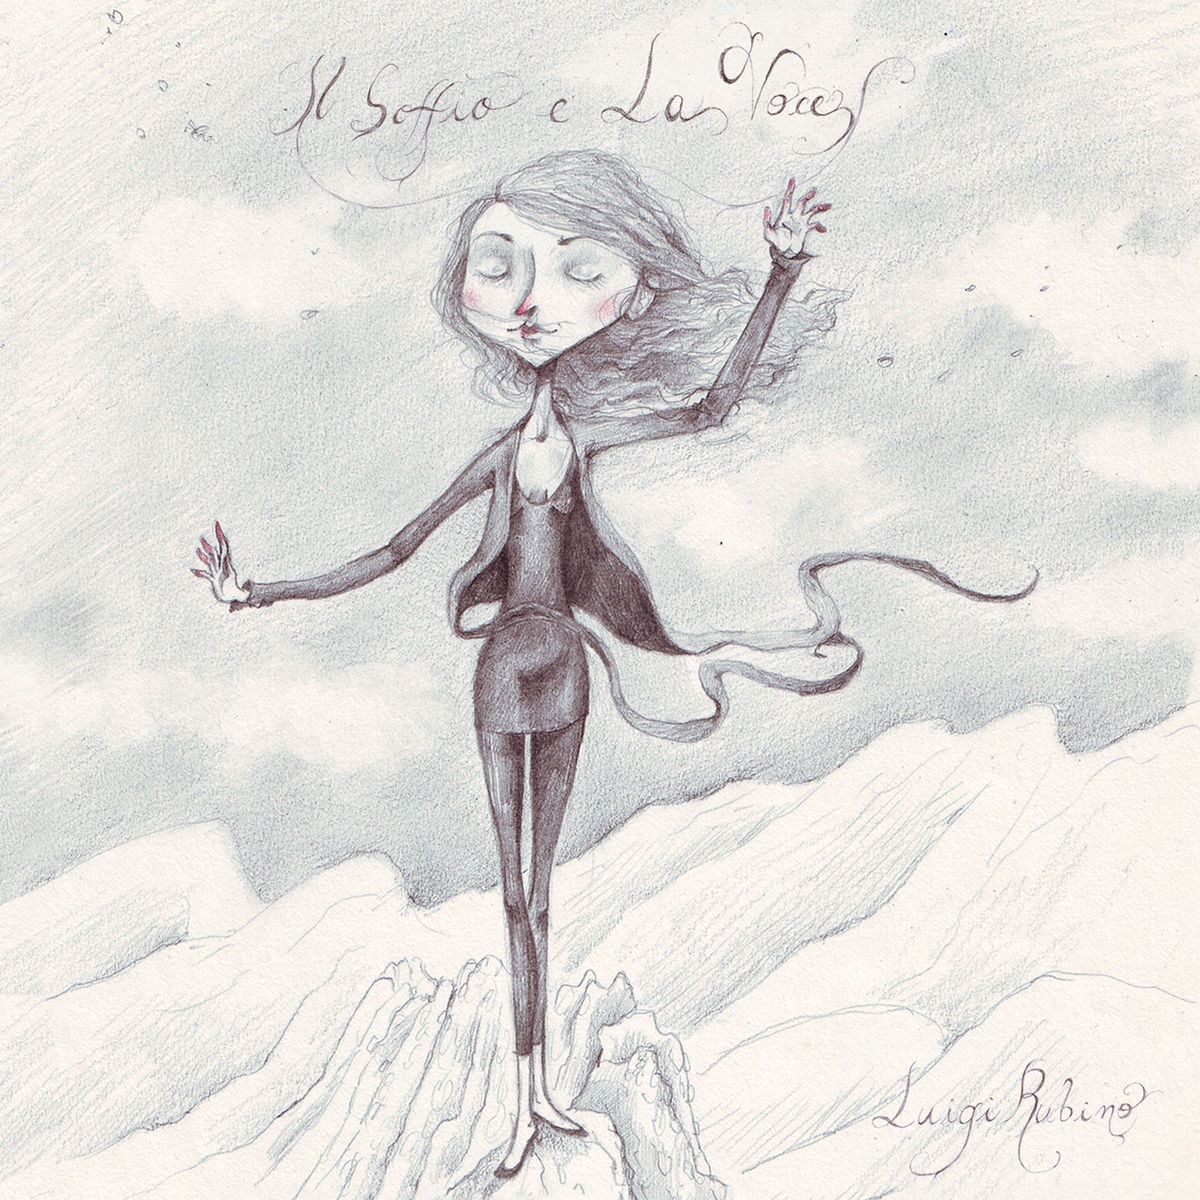 Il Soffio e La Voce
Luigi Rubino